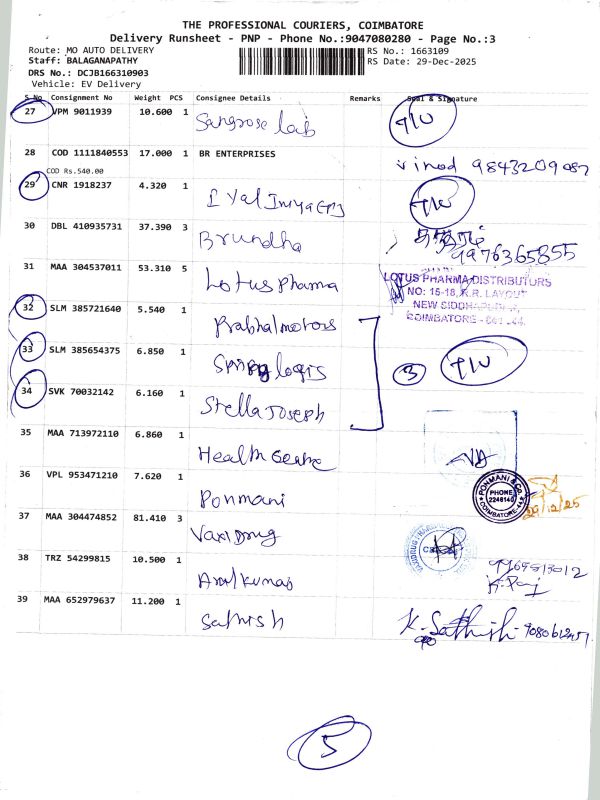 THE PROFESSIONAL COURIERS, COIMBATORE
Delivery Runsheet - PNP - Phone No.:9047080280 - Page No.:3
Route: MO AUTO DELIVERY RS No.: 1663109
Staff: BALAGANAPATHY RS Date: 29-Dec-2025
DRS No.: DCJB166310903
Vehicle: EV Delivery
S No Consignment No Weight PCS Consignee Details Remarks Seal & Signature
27 VPM 9011939 10.600 1 Sangrose Lab
28 COD 1111840553 17.000 1 BR ENTERPRISES Vinod 9843209087
COD Rs.540.00
29 CNR 1918237 4.320 1
30 DBL 410935731 37.390 3 Brundha 9976365855
31 MAA 304537011 53.310 5 Lotus Pharma
LOTUS PHARMA DISTRIBUTORS
NO: 15-18, R.R. LAYOUT
NEW SIDDHAPUDUR,
COIMBATORE - 641 044.
32 SLM 385721640 5.540 1 Prabhal motors
33 SLM 385654375 6.850 1 3
34 SVK 70032142 6.160 1 Stella Joseph
35 MAA 713972110 6.860 1 Health Centre
36 VPL 953471210 7.620 1 Ponmani
PONMANI & CO.
PHONE
2246140
COIMBATORE-44
29/12/25
37 MAA 304474852 81.410 3 Vaxi Drug
38 TRZ 54299815 10.500 1 Arulkumar
39 MAA 652979637 11.200 1 Sathish K. Sathish
5